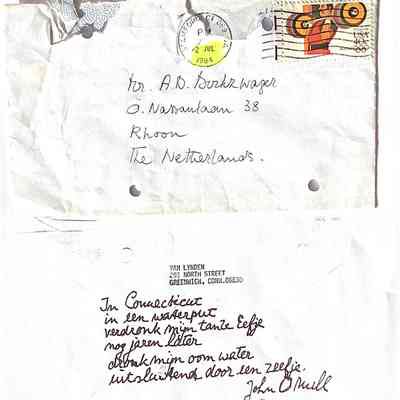 PM
2 JUL
1984
Mr. A.D. Bockzwager
O. Nassaulaan 38
Rhoon
The Netherlands.
VAN LYNDEN
201 NORTH STREET
GREENWICH, CONN.06830
In Connecticut
in een waterput
verdronk mijn tante Eefje
nog jaren later
dronk mijn oom water
uitsluitend door een zeefje.
John O'Mill